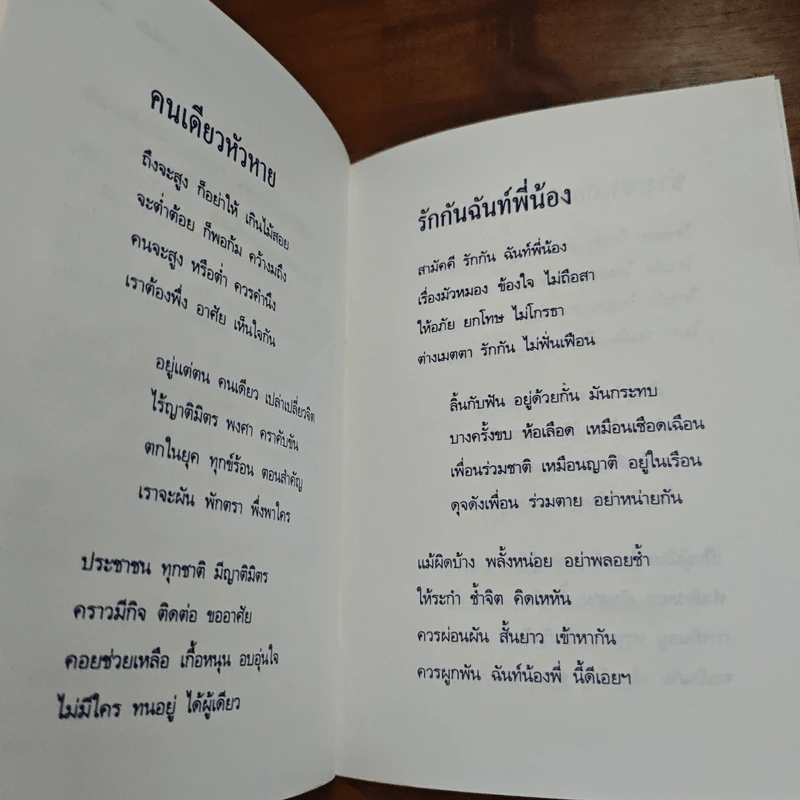 คนเดียวหัวหาย
ถึงจะสูง ก็อย่าให้ เกินไม้สอย
จะต่ำต้อย ก็พอก้ม คว้างมถึง
คนจะสูง หรือต่ำ ควรคำนึง
เราต้องพึ่ง อาศัย เห็นใจกัน
อยู่แต่ตน คนเดียว เปล่าเปลี่ยวจิต
ไร้ญาติมิตร พงศา คราคับขัน
ตกในยุค ทุกข์ร้อน ตอนสำคัญ
เราจะผัน พักตรา พึ่งพาใคร
ประชาชน ทุกชาติ มีญาติมิตร
คราวมีกิจ ติดต่อ ขออาศัย
คอยช่วยเหลือ เกื้อหนุน อบอุ่นใจ
ไม่มีใคร ทนอยู่ ได้ผู้เดียว
รักกันฉันท์พี่น้อง
สามัคคี รักกัน ฉันท์พี่น้อง
เรื่องมัวหมอง ข้องใจ ไม่ถือสา
ให้อภัย ยกโทษ ไม่โกรธา
ต่างเมตตา รักกัน ไม่ฟั่นเฟือน
ลิ้นกับฟัน อยู่ด้วยกั้น มันกระทบ
บางครั้งขบ ห้อเลือด เหมือนเชือดเฉือน
เพื่อนร่วมชาติ เหมือนญาติ อยู่ในเรือน
ดุจดังเพื่อน ร่วมตาย อย่าหน่ายกัน
แม้ผิดบ้าง พลั้งหน่อย อย่าพลอยซ้ำ
ให้ระกำ ช้ำจิต คิดเหหัน
ควรผ่อนผัน สั้นยาว เข้าหากัน
ควรผูกพัน ฉันท์น้องพี่ นี้ดีเอยฯ